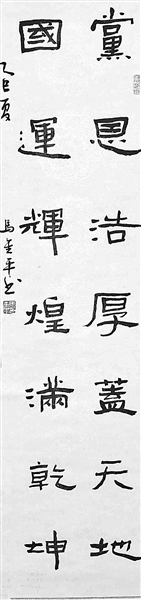 黨恩浩厚蓋天地
國運輝煌滿乾坤
乙巳夏
馬金平書